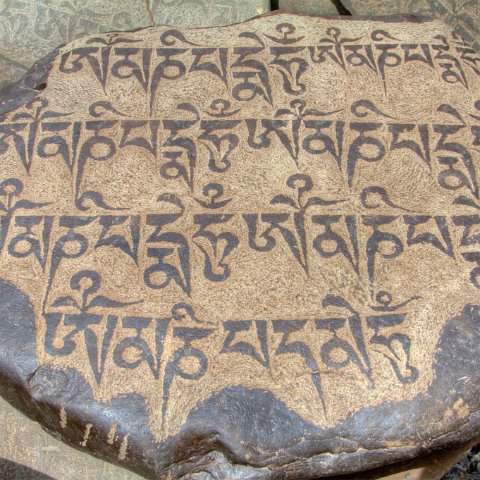 ཨོཾམཎིཔདྨེཧཱུྃཨོཾམཎིཔདྨེ
ཨོཾམཎིཔདྨེཧཱུྃཨོཾམཎིཔདྨེ
ཨོཾམཎིཔདྨེཧཱུྃཨོཾམཎིཔདྨེ
ཨོཾམཎིཔདམེཧཱུྃ